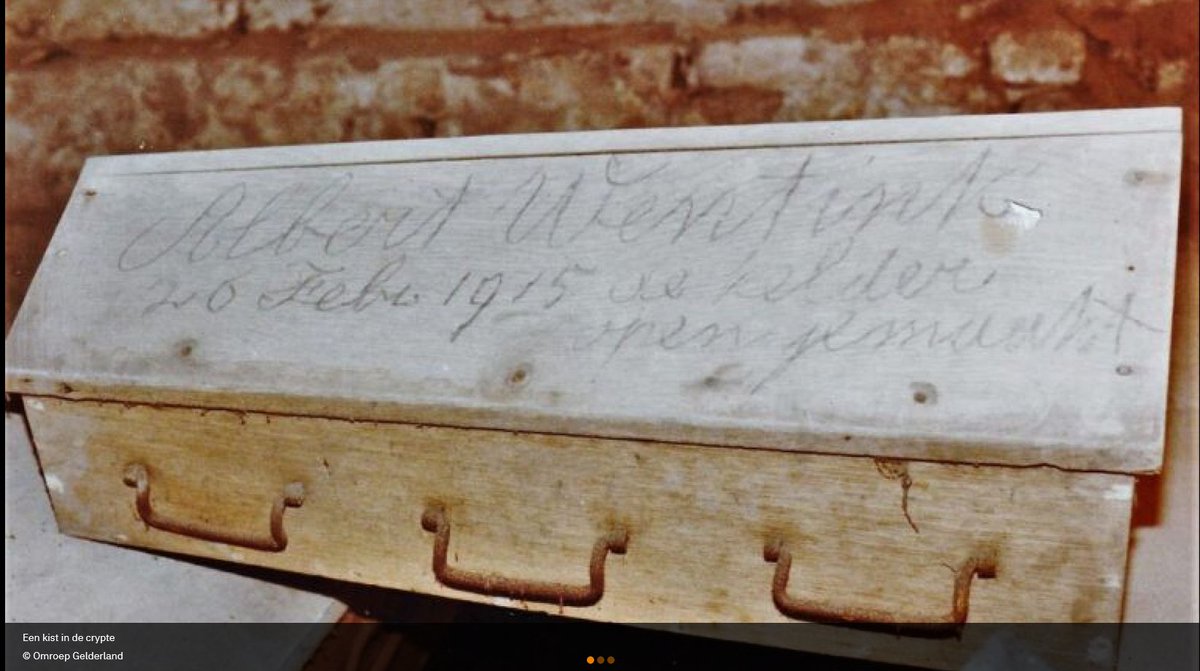 Albert Wentink
26 Febr 1915 is kelder
open gemaakt
Een kist in de crypte
© Omroep Gelderland